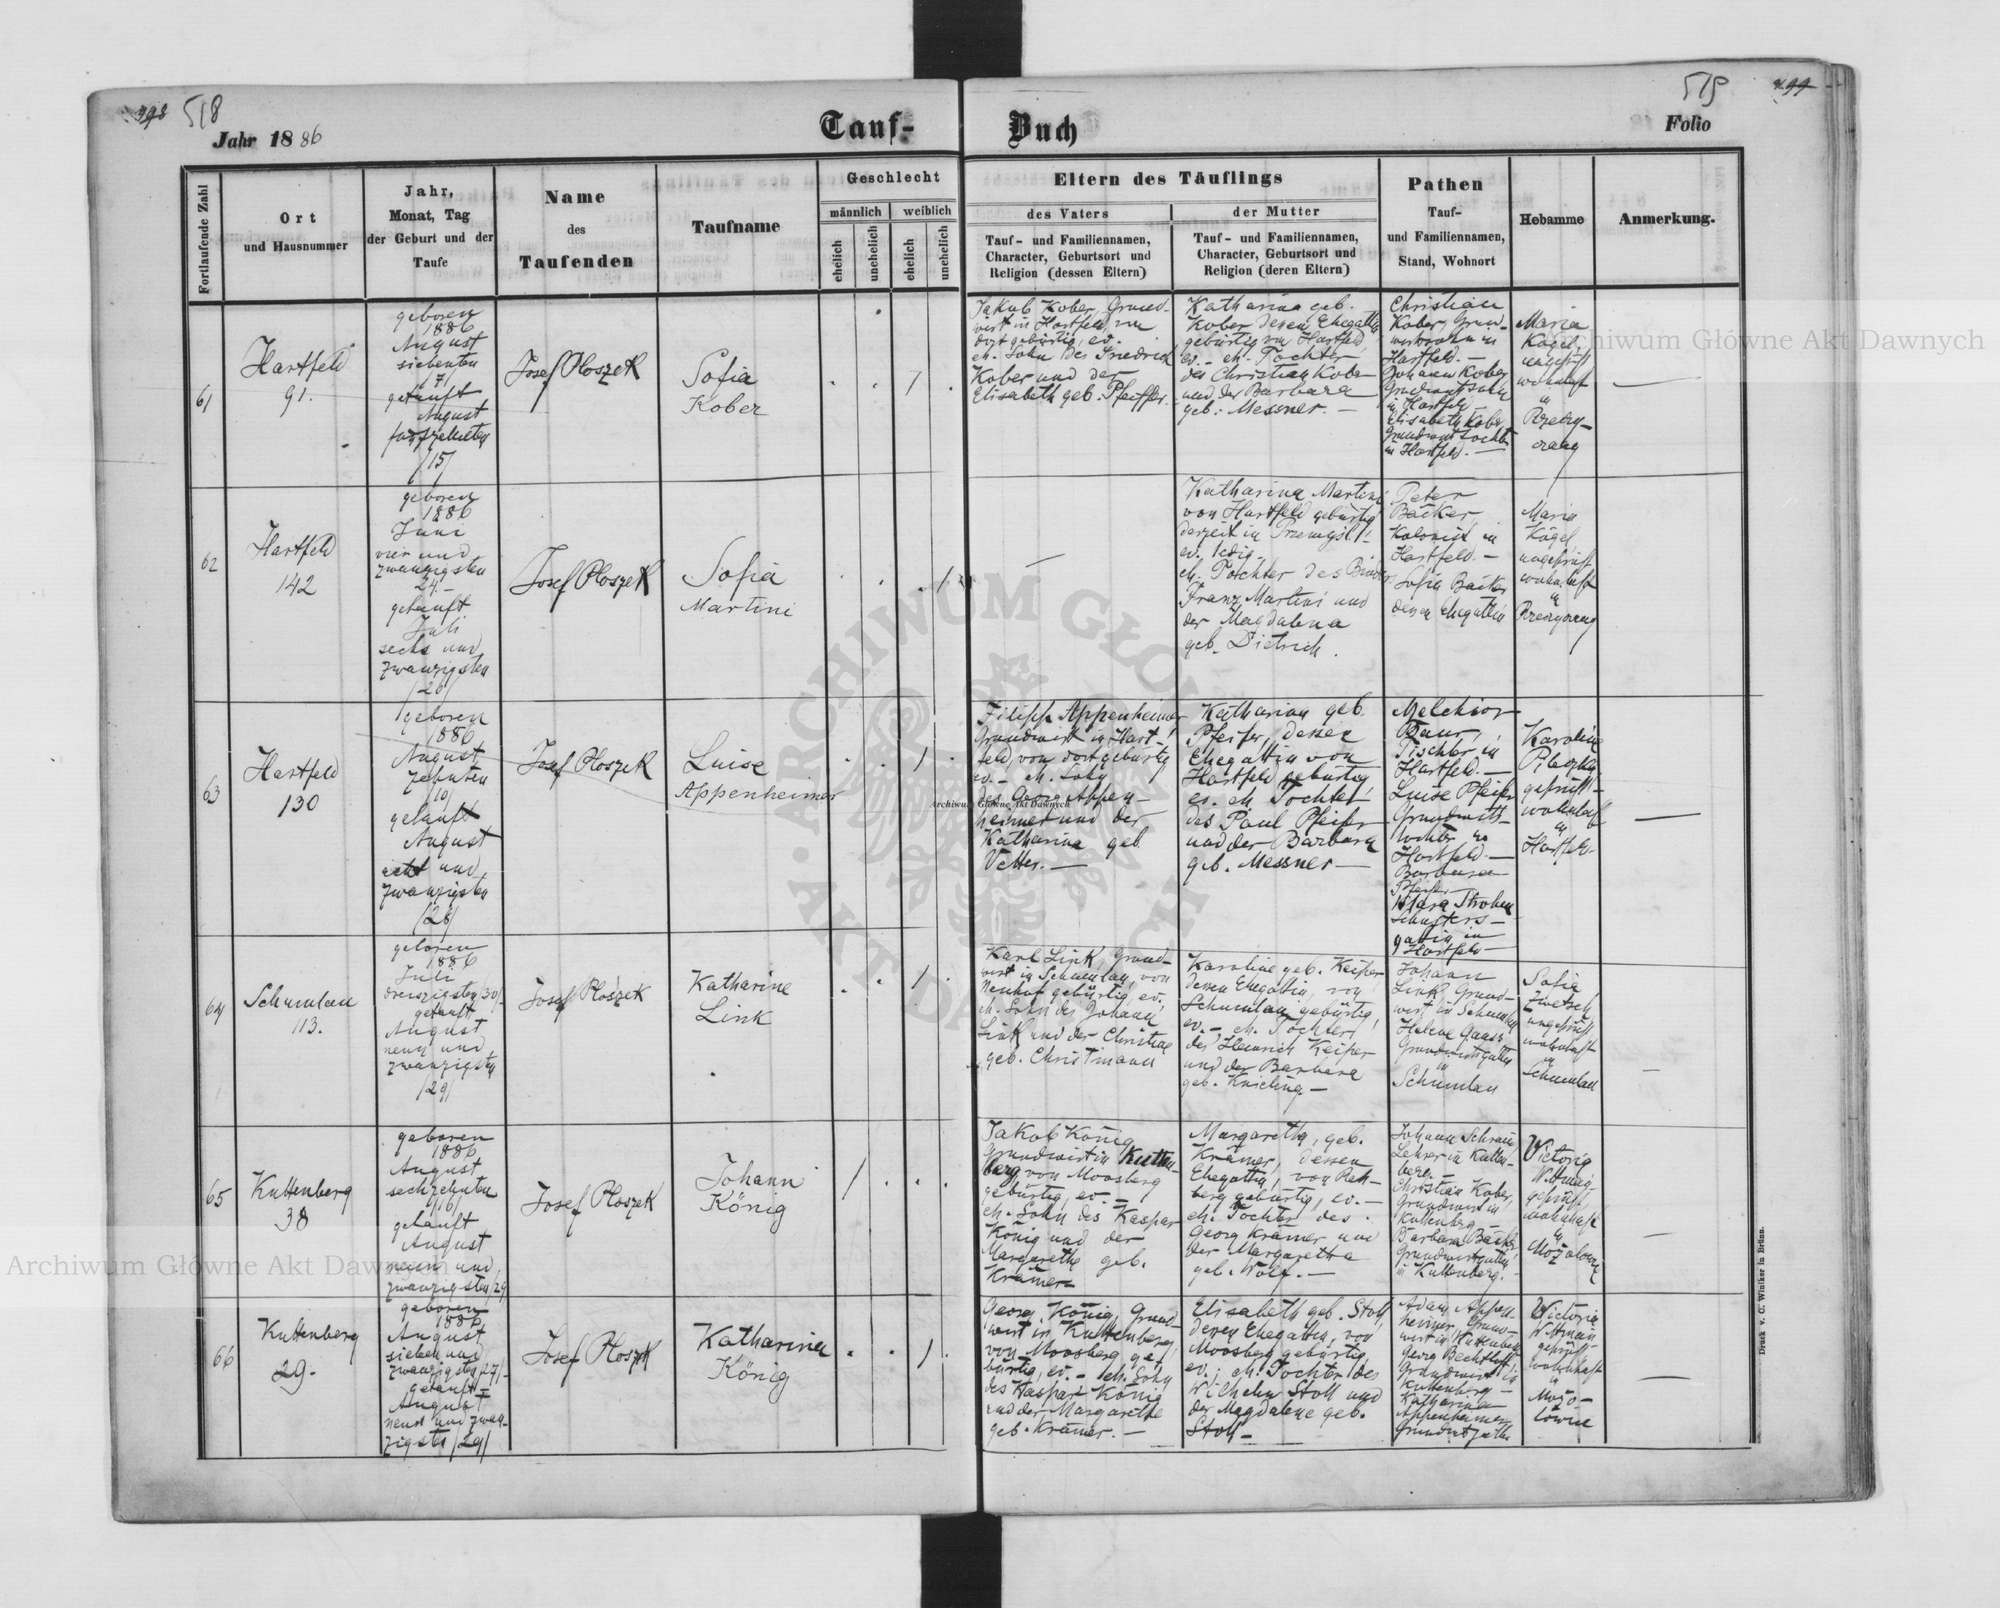 498 518
Jahr 1886
Tauf-
Buch
519 499
Folio
Fortlaufende Zahl
Ort
und Hausnummer
Jahr,
Monat, Tag
der Geburt und der
Taufe
Name
des
Taufenden
Taufname
Geschlecht
männlich
weiblich
ehelich
unehelich
ehelich
unehelich
Eltern des Täuflings
des Vaters
Tauf- und Familiennamen,
Character, Geburtsort und
Religion (dessen Eltern)
der Mutter
Tauf- und Familiennamen,
Character, Geburtsort und
Religion (deren Eltern)
Pathen
Tauf-
und Familiennamen,
Stand, Wohnort
Hebamme
Anmerkung.
61
Hartfeld
91.
geboren
1886
August
siebenten
/7/
getauft
August
fünfzehnten
/15/
Josef Ploszek
Sofia
Kober
Jakob Kober, Grund-
wirt in Hartfeld, von
dort gebürtig, ev.
eh. Sohn des Friedrich
Kober und der
Elisabeth geb. Pfeiffer.
Katharina geb.
Kober dessen Ehegattin
gebürtig von Hartfeld
ev. - eh. Tochter
des Christian Kober
und der Barbara
geb. Messner. -
Christian
Kober, Grund-
Hartfeld. -
Johann Kober
in Hartfeld
Elisabeth Kober
Grundwirtstochter
in Hartfeld. -
Maria
Kögel
ungeprüft
wohnhaft
in
62
Hartfeld
142
geboren
1886
Juni
vier und
zwanzigsten
24. -
getauft
Juli
sechs und
zwanzigsten
/26/
Josef Ploszek
Sofia
Martini
Katharina Martini
von Hartfeld gebürtig
derzeit in Przemyśl
ev. ledig -
eh. Tochter des
Franz Martini und
der Magdalena
geb. Dietrich.
Peter
Bäcker
Kolonist in
Hartfeld. -
Sofia Bäcker
dessen Ehegattin
Maria
Kögel
ungeprüft
wohnhaft
in
63
Hartfeld
130
geboren
1886
August
zehnten
/10/
getauft
August
acht und
zwanzigsten
/28/
Josef Ploszek
Luise
Appenheimer
Filipp Appenheimer
Grundwirt in Hart-
feld, von dort gebürtig
ev. - eh. Sohn
des Georg Appen-
heimer und der
Katharina geb
Vetter. -
Katharina geb.
Pfeifer, dessen
Ehegattin von
Hartfeld gebürtig
ev. eh Tochter
des Paul Pfeifer
und der Barbara
geb. Messner -
Melchior
Tischler in
Hartfeld. -
Luise Pfeifer
Grundwirts-
tochter in
Hartfeld -
Barbara
Pfeifer
Hartfeld -
Karoline
geprüft
wohnhaft
in
Hartfeld.
64
Schumlau
113.
geboren
1886
Juli
dreiszigsten /30/
getauft
August
neun und
zwanzigsten
/29/
Josef Ploszek
Katharine
Link
Karl Link, Grund-
wirt in Schumlau, von
Neuhof gebürtig, ev.
eh. Sohn des Johann
Link und der Christine
geb. Christmann
Karoline geb. Keiper
dessen Ehegattin, von
Schumlau gebürtig,
ev. - eh. Tochter
des Heinrich Keiper
und der Barbara
geb. Knieling -
Johann
Link, Grund-
wirt in Schumlau
Helene
in
Schumlau
Sofia
Zwetsch
ungeprüft
wohnhaft
in
Schumlau
65
Kuttenberg
38
geboren
1886
August
sechzehnten
/16/
getauft
August
neun und
zwanzigsten /29
Josef Ploszek
Johann
König
Jakob König
Grundwirt in Kutten-
berg von Moosberg
gebürtig, ev. -
eh. Sohn des Kaspar
König und der
Margarethe geb.
Krämer
Margaretha, geb.
Krämer, dessen
Ehegattin, von Reh-
berg gebürtig, ev. -
eh. Tochter des
Georg Krämer und
der Margaretha
geb. Wolf. -
Lehrer in Kutten-
berg. -
Christian Kober,
Grundwirt in
Kuttenberg -
Barbara Bäcker
in Kuttenberg. -
Victoria
geprüft
wohnhaft
in
66
Kuttenberg
29.
geboren
1886
August
sieben und
zwanzigsten /27/
getauft
August
neun und zwan-
zigsten /29/
Josef Ploszek
Katharina
König
Georg König, Grund-
wirt in Kuttenberg,
von Moosberg ge-
bürtig, ev. - eh. Sohn
des Kaspar König
und der Margarethe
geb. Krämer. -
Elisabeth geb. Stoll,
deren Ehegattin, von
Moosberg gebürtig
ev; eh. Tochter des
Wilhelm Stoll und
der Magdalene geb.
Stoll -
Adam Appen-
heimer, Grund-
wirt in Kuttenberg
Georg Bechtloff
Grundwirt in
Kuttenberg -
Katharina
Appenheimer
Victoria
geprüft
wohnhaft
in
Druck v. C. Winiker in Brünn.
Archiwum Główne Akt Dawnych
Archiwum Główne Akt Dawnych
Archiwum Główne Akt Dawnych